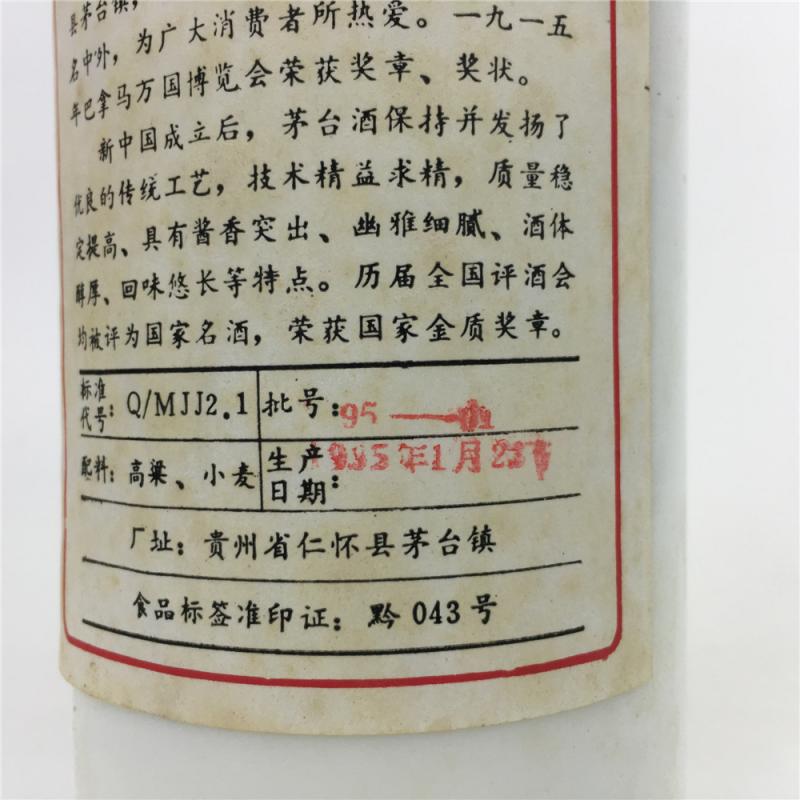 县茅台镇，
名中外，为广大消费者所热爱。一九一五
年巴拿马万国博览会荣获奖章、奖状。
新中国成立后，茅台酒保持并发扬了
优良的传统工艺，技术精益求精，质量稳
定提高、具有酱香突出、幽雅细腻、酒体
醇厚、回味悠长等特点。历届全国评酒会
均被评为国家名酒，荣获国家金质奖章。
标准代号：Q/MJJ2.1 批号：95—
配料：高粱、小麦 生产日期：1995年1月
厂址：贵州省仁怀县茅台镇
食品标签准印证：黔043号